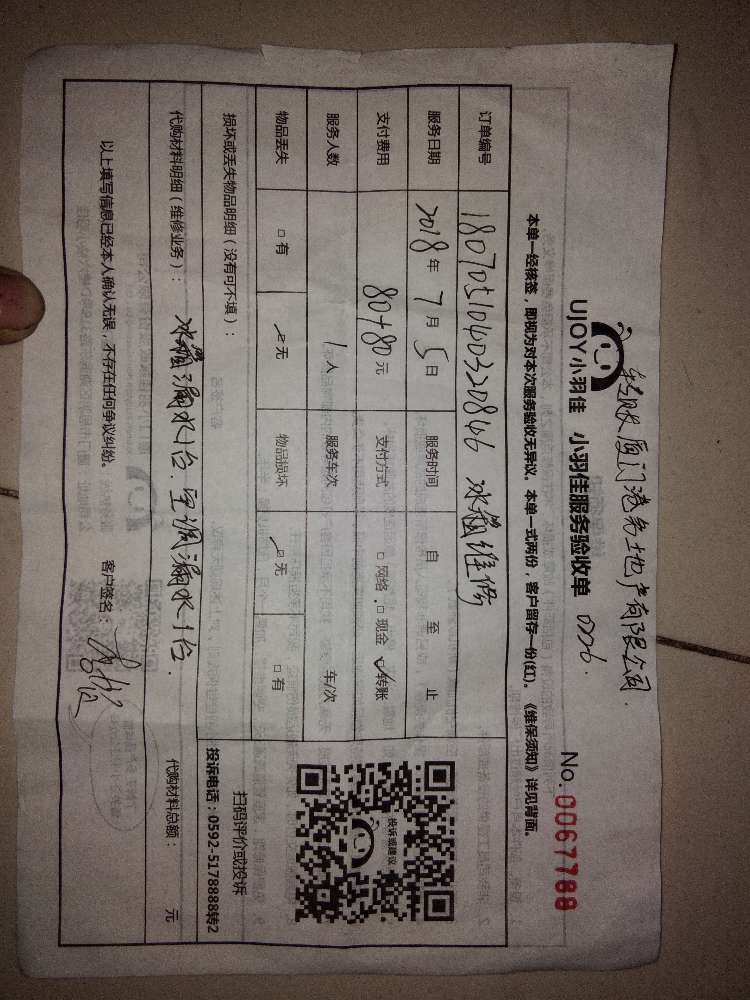 转账 厦门港务地产有限公司.
UJOY小羽佳 小羽佳服务验收单
No.0067788
本单一经核签，即视为对本次服务验收无异议。本单一式两份，客户留存一份(红)。《维保须知》详见背面。
订单编号 1807051040320846 冰箱维修
服务日期 2018年7月5日 服务时间 自 至 止
支付费用 80+80元 支付方式 □网络 □现金 ☑转账
服务人数 1人 服务车次 车/次
物品丢失 □有 ☑无 物品损坏 ☑无 □有
投诉或建议
扫码评价或投诉
投诉电话：0592-5178888转2
损坏或丢失物品明细（没有可不填）：
代购材料明细（维修业务）： 冰箱漏水1台.空调漏水1台. 代购材料总额： 元
以上填写信息已经本人确认无误，不存在任何争议纠纷。 客户签名：